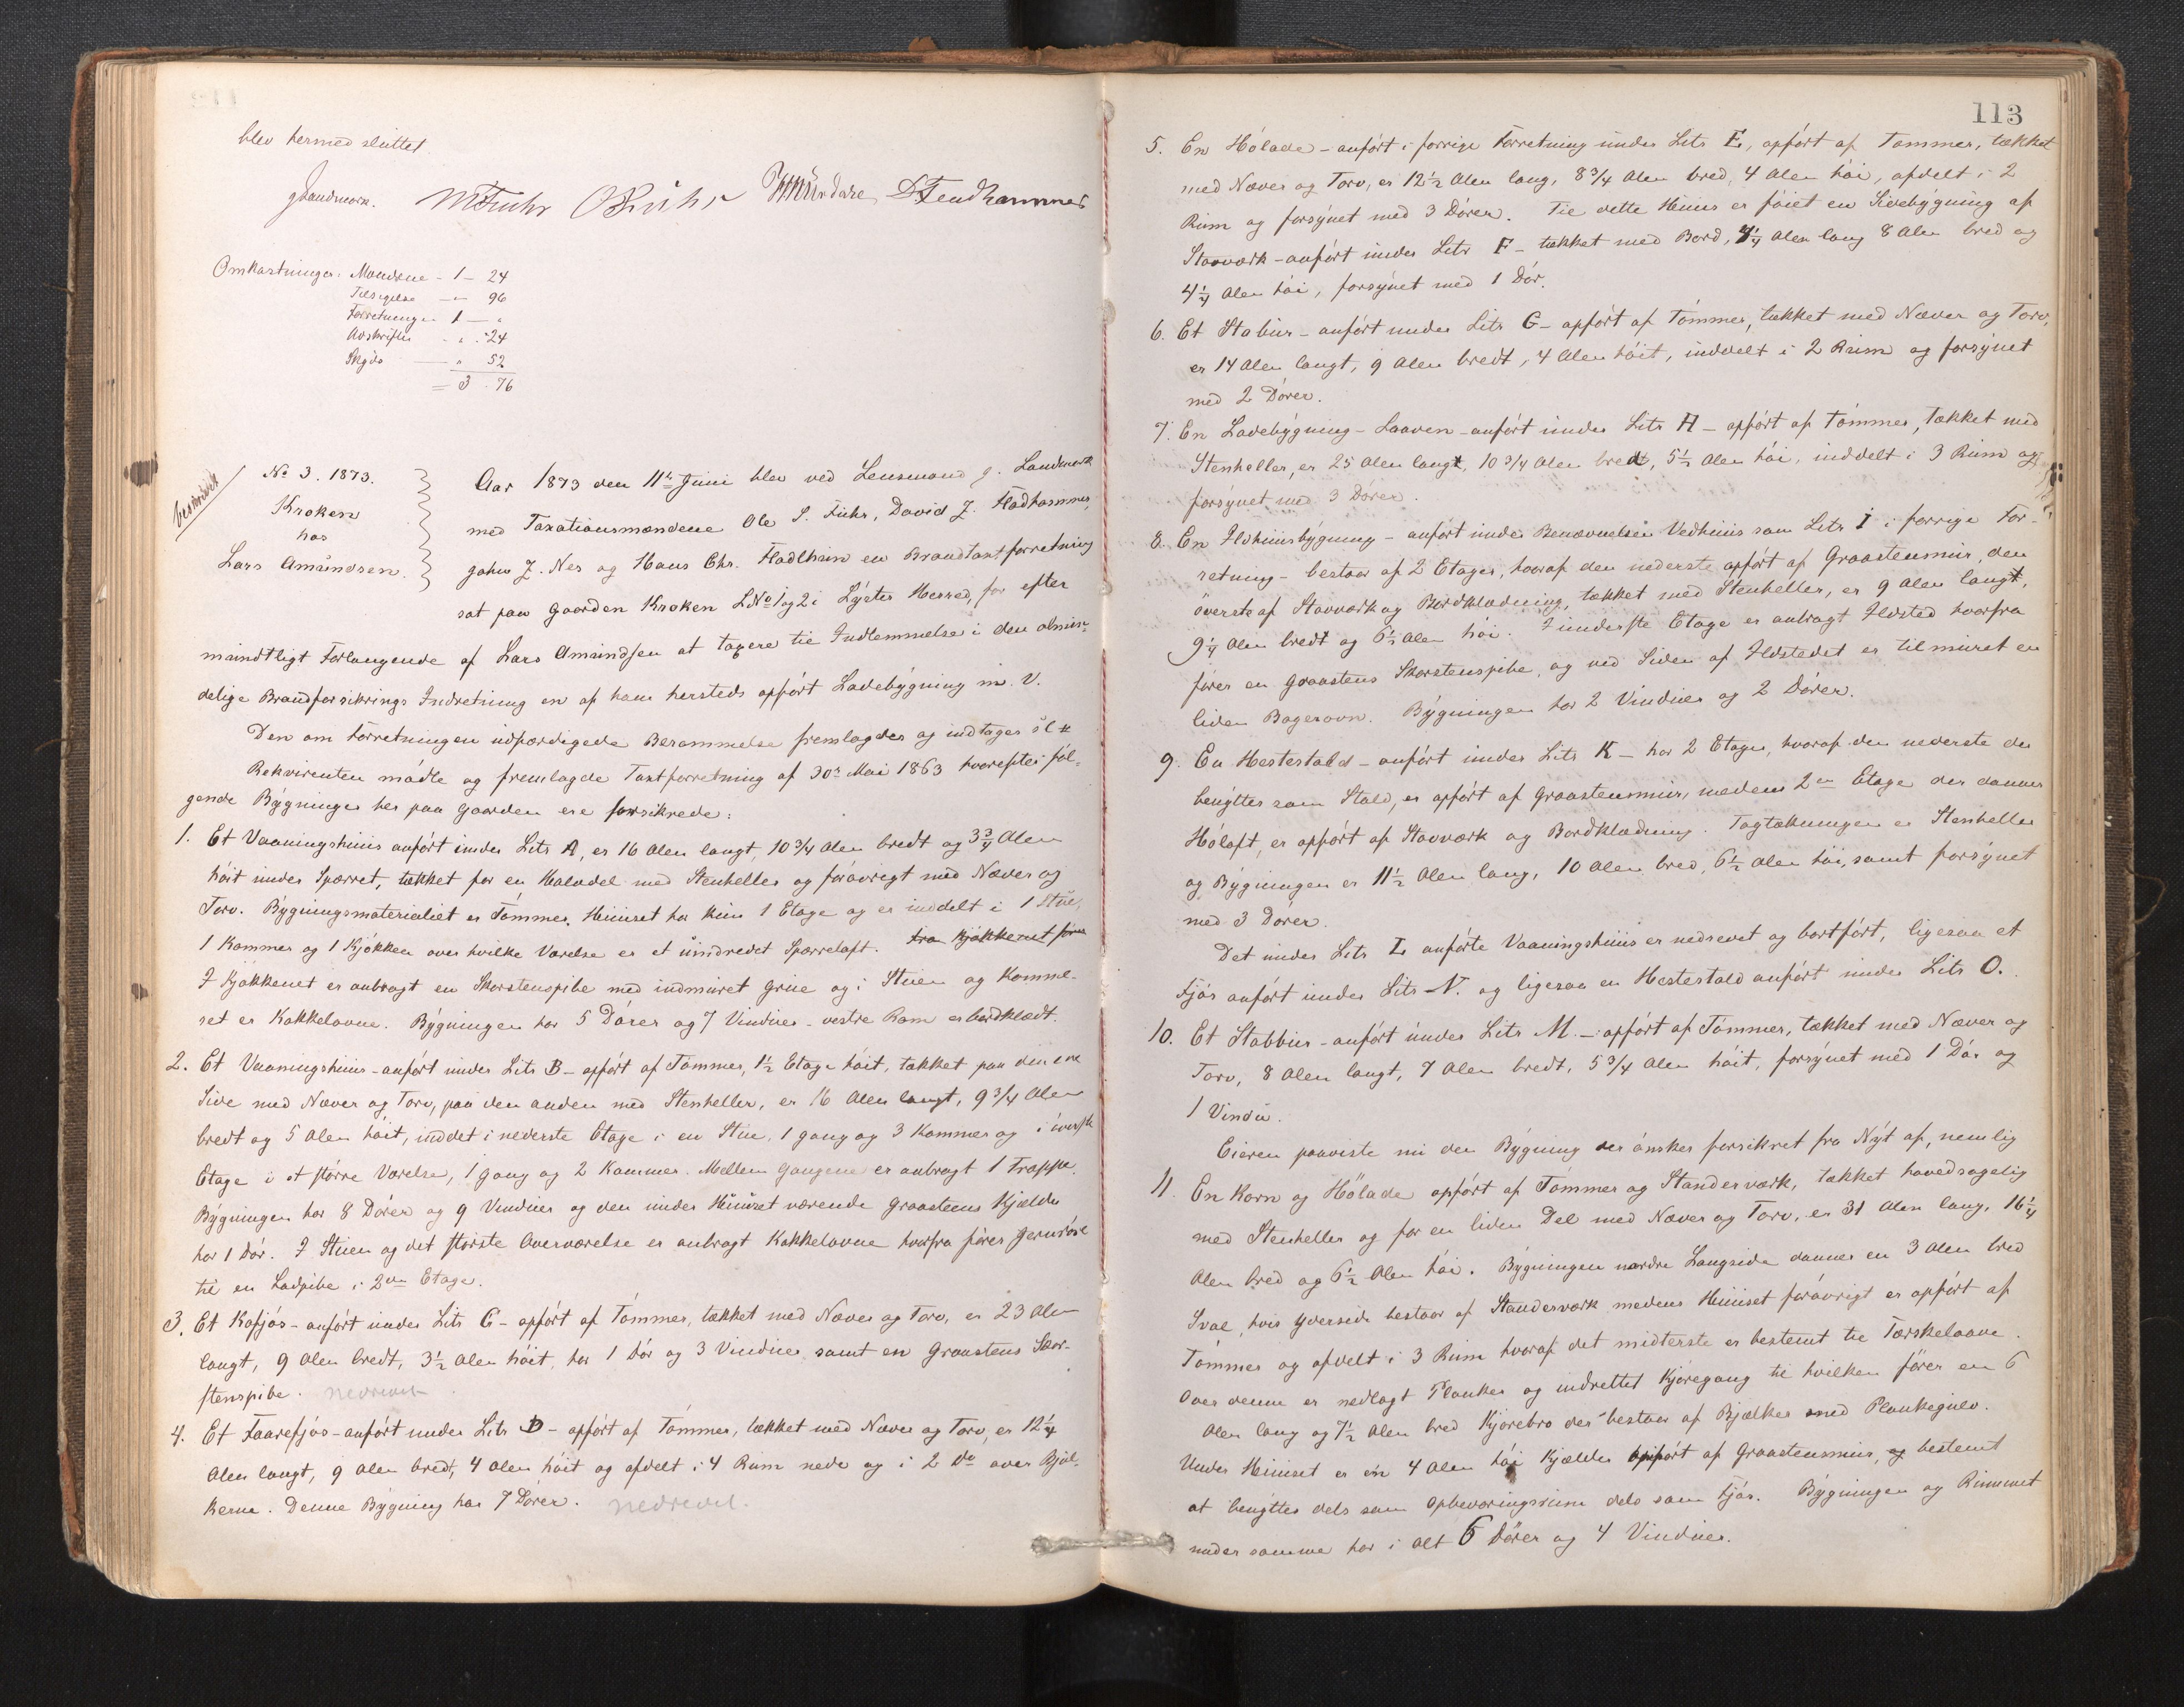 blev hermed sluttet
M Fuhr
Omkostninger: Mændene - 1 - 24
Tilsigelse - " 96
Forretningen 1 - "
Avskriften - " - 24
Skyds - " 52
= 3 - 76
beskrevet
No 3. 1873.
Kroken
hos
Lars Amundsen.
Aar 1873 den 11te Juni blev ved Lensmand J. Landmark
med Taxationsmændene Ole S. Fuhr, David J. Fladhammer,
John J. Nes og Hans Chr. Fladhein en Brandtaxtforretning
sat paa Gaarden Kroken LNo 1 og 2 i Lyster Herred, for efter
mundtligt Forlangende af Lars Amundsen at taxere til Indlemmelse i den almin-
delige Brandforsikrings Indretning en af ham hersteds opført Ladebygning m. V.
Den om Forretningen udfærdigede Berammelse fremlagdes og indtages sl #
Rekvirenten mødte og fremlagde Taxtforretning af 30te Mai 1863 hvorefter føl-
gende Bygninger her paa Gaarden ere forsikrede:
1. Et Vaaningshuus anført under Litr A, er 16 Alen langt, 10 3/4 Alen bredt og 3 3/4 Alen
høit under Sparret, tækket for en Halvdel med Stenheller og forøvrigt med Næver og
Torv. Bygningsmaterialiet er Tømmer. Huuset har kun 1 Etage og er inddelt i 1 Stue,
1 Kammer og 1 Kjøkken over hvilke Værelse er et uindredet Sparreloft. Fra Kjøkkenet fører
I Kjøkkenet er anbragt en Skorstenspibe med indmuret Grue og i Stuen og Kamme-
ret er Kakkelovne. Bygningen har 5 Dører og 7 Vinduer - vestre Rom er bordklædt.
2. Et Vaaningshuus - anført under Litr B - opført af Tømmer, 1 1/2 Etage høit, tækket paa den ene
Side med Næver og Torv, paa den anden med Stenheller, er 16 Alen langt, 9 3/4 Alen
bredt og 5 Alen høit, inddet i nederste Etage i en Stue, 1 Gang og 3 Kammer og i øverste
Etage i et større Værelse, 1 Gang og 2 Kammer. Mellem Gangene er anbragt 1 Trappe.
Bygningen har 8 Dører og 9 Vinduer og den under Huuset værende Graasteens Kjælder
har 1 Dør. I Stuen og det største Overværelse er anbragt Kakkelovne hvorfra fører Jernrøre
til en Ladpibe i 2den Etage.
3. Et Kofjøs - anført under Litr C - opført af Tømmer, tækket med Næver og Torv, er 23 Alen
langt, 9 Alen bredt, 3 1/2 Alen høit, har 1 Dør og 3 Vinduer samt en Graastens Skor-
stenspibe. nedrevet.
4. Et Faarefjøs - anført under Litr D - opført af Tømmer, tækket med Næver og Torv, er 12 1/4
Alen langt, 9 Alen bredt, 4 Alen høit og afdelt i 4 Rum nede og i 2 do over Bjæl-
kerne. Denne Bygning har 7 Dører. nedrevet.
113
5. En Hølade - anført i forrige Forretning under Litr E, opført af Tømmer, tækket
med Næver og Torv, er 12 1/2 Alen lang, 8 3/4 Alen bred, 4 Alen høi, afdelt i 2
Rum og forsynet med 3 Dører. Til dette Huus er føiet en Sidebygning af
Stavværk - anført under Litr F - tækket med Bord, 4 1/4 Alen lang 8 Alen bred og
4 1/4 Alen høi, forsynet med 1 Dør.
6. Et Stabur - anført under Litr G - opført af Tømmer, tækket med Næver og Torv,
er 14 Alen langt, 9 Alen bredt, 4 Alen høit, inddelt i 2 Rum og forsynet
med 2 Dører.
7. En Ladebygning - Laaven - anført under Litr H - opført af Tømmer, tækket med
Stenheller, er 25 Alen langt, 10 3/4 Alen bredt, 5 1/2 Alen høi, inddelt i 3 Rum og
forsynet med 3 Dører.
8. En Ildhuusbygning - anført under Benævnelsen Vedhuus som Litr I i forrige For-
retning - bestaar af 2 Etager, hvoraf den nederste opført af Graasteensmur, den
øverste af Stavværk og Bordklædning, tækket med Stenheller, er 9 Alen langt,
9 1/4 Alen bredt og 6 1/2 Alen høi. I underste Etage er anbragt Ildsted hvorfra
fører en Graastens Skorstenspibe, og ved Siden af Ildstedet er tilmuret en
liden Bagerovn. Bygningen har 2 Vinduer og 2 Dører.
9. En Hestestald - anført under Litr K - har 2 Etager, hvoraf den nederste der
benyttes som Stald, er opført af Graasteensmur, medens 2en Etage der danner
Høloft, er opført af Stavværk og Bordklædning. Tagtækningen er Stenheller
og Bygningen er 11 1/2 Alen lang, 10 Alen bred, 6 1/2 Alen høi, samt forsynet
med 3 Dører.
Det under Litr L anførte Vaaningshuus er nedrevet og bortført, ligesaa et
Fjøs anført under Litr N. og ligesaa en Hestestald anført under Litr O.
10. Et Stabbur - anført under Litr M. - opført af Tømmer, tækket med Næver og
Torv, 8 Alen langt, 7 Alen bredt, 5 3/4 Alen høit, forsynet med 1 Dør og
1 Vindu.
Eieren paaviste nu den Bygning der ønskes forsikret fra Nyt af, nemlig
11. En Korn og Hølade opført af Tømmer og Standerværk, tækket hovedsagelig
med Stenheller og for en liden Del med Næver og Torv, er 31 Alen lang, 16 1/4
Alen bred og 6 1/2 Alen høi. Bygningen nordre Langside danner en 3 Alen bred
Sval, hvis Yderside bestaar af Standerværk medens Huuset forøvrigt er opført af
Tømmer og afdelt i 3 Rum hvoraf det midterste er bestemt til Tærskelaave.
Over denne er nedlagt Planker og indrettet Kjøregang til hvilken fører en 6
Alen lang og 7 1/2 Alen bred Kjørebro der bestaar af Bjælker med Plankegulv.
Under Huuset er en 4 Alen høi Kjælder opført af Graasteensmur, og bestemt
at benyttes dels som Opbevaringsrum dels som Fjøs. Bygningen og Rummet
under samme har i alt 6 Dører og 4 Vinduer.